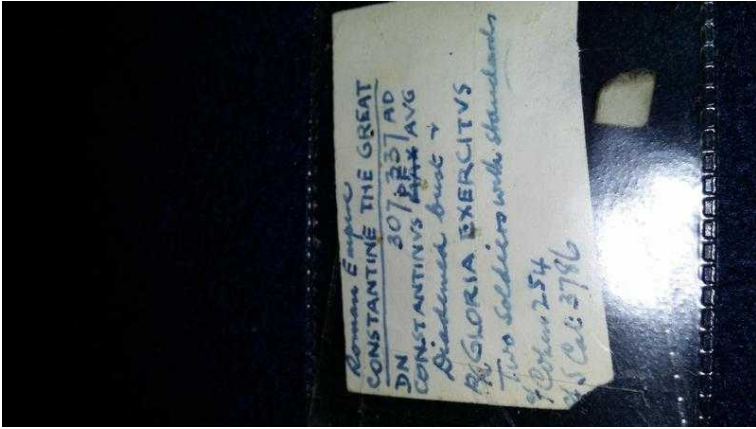 Roman Empire
CONSTANTINE THE GREAT
307-337 AD
DN CONSTANTINVS PF AVG
Diademed bust
R/ GLORIA EXERCITVS
Two Soldiers with standards
Cohen 254
S Cat: 3786